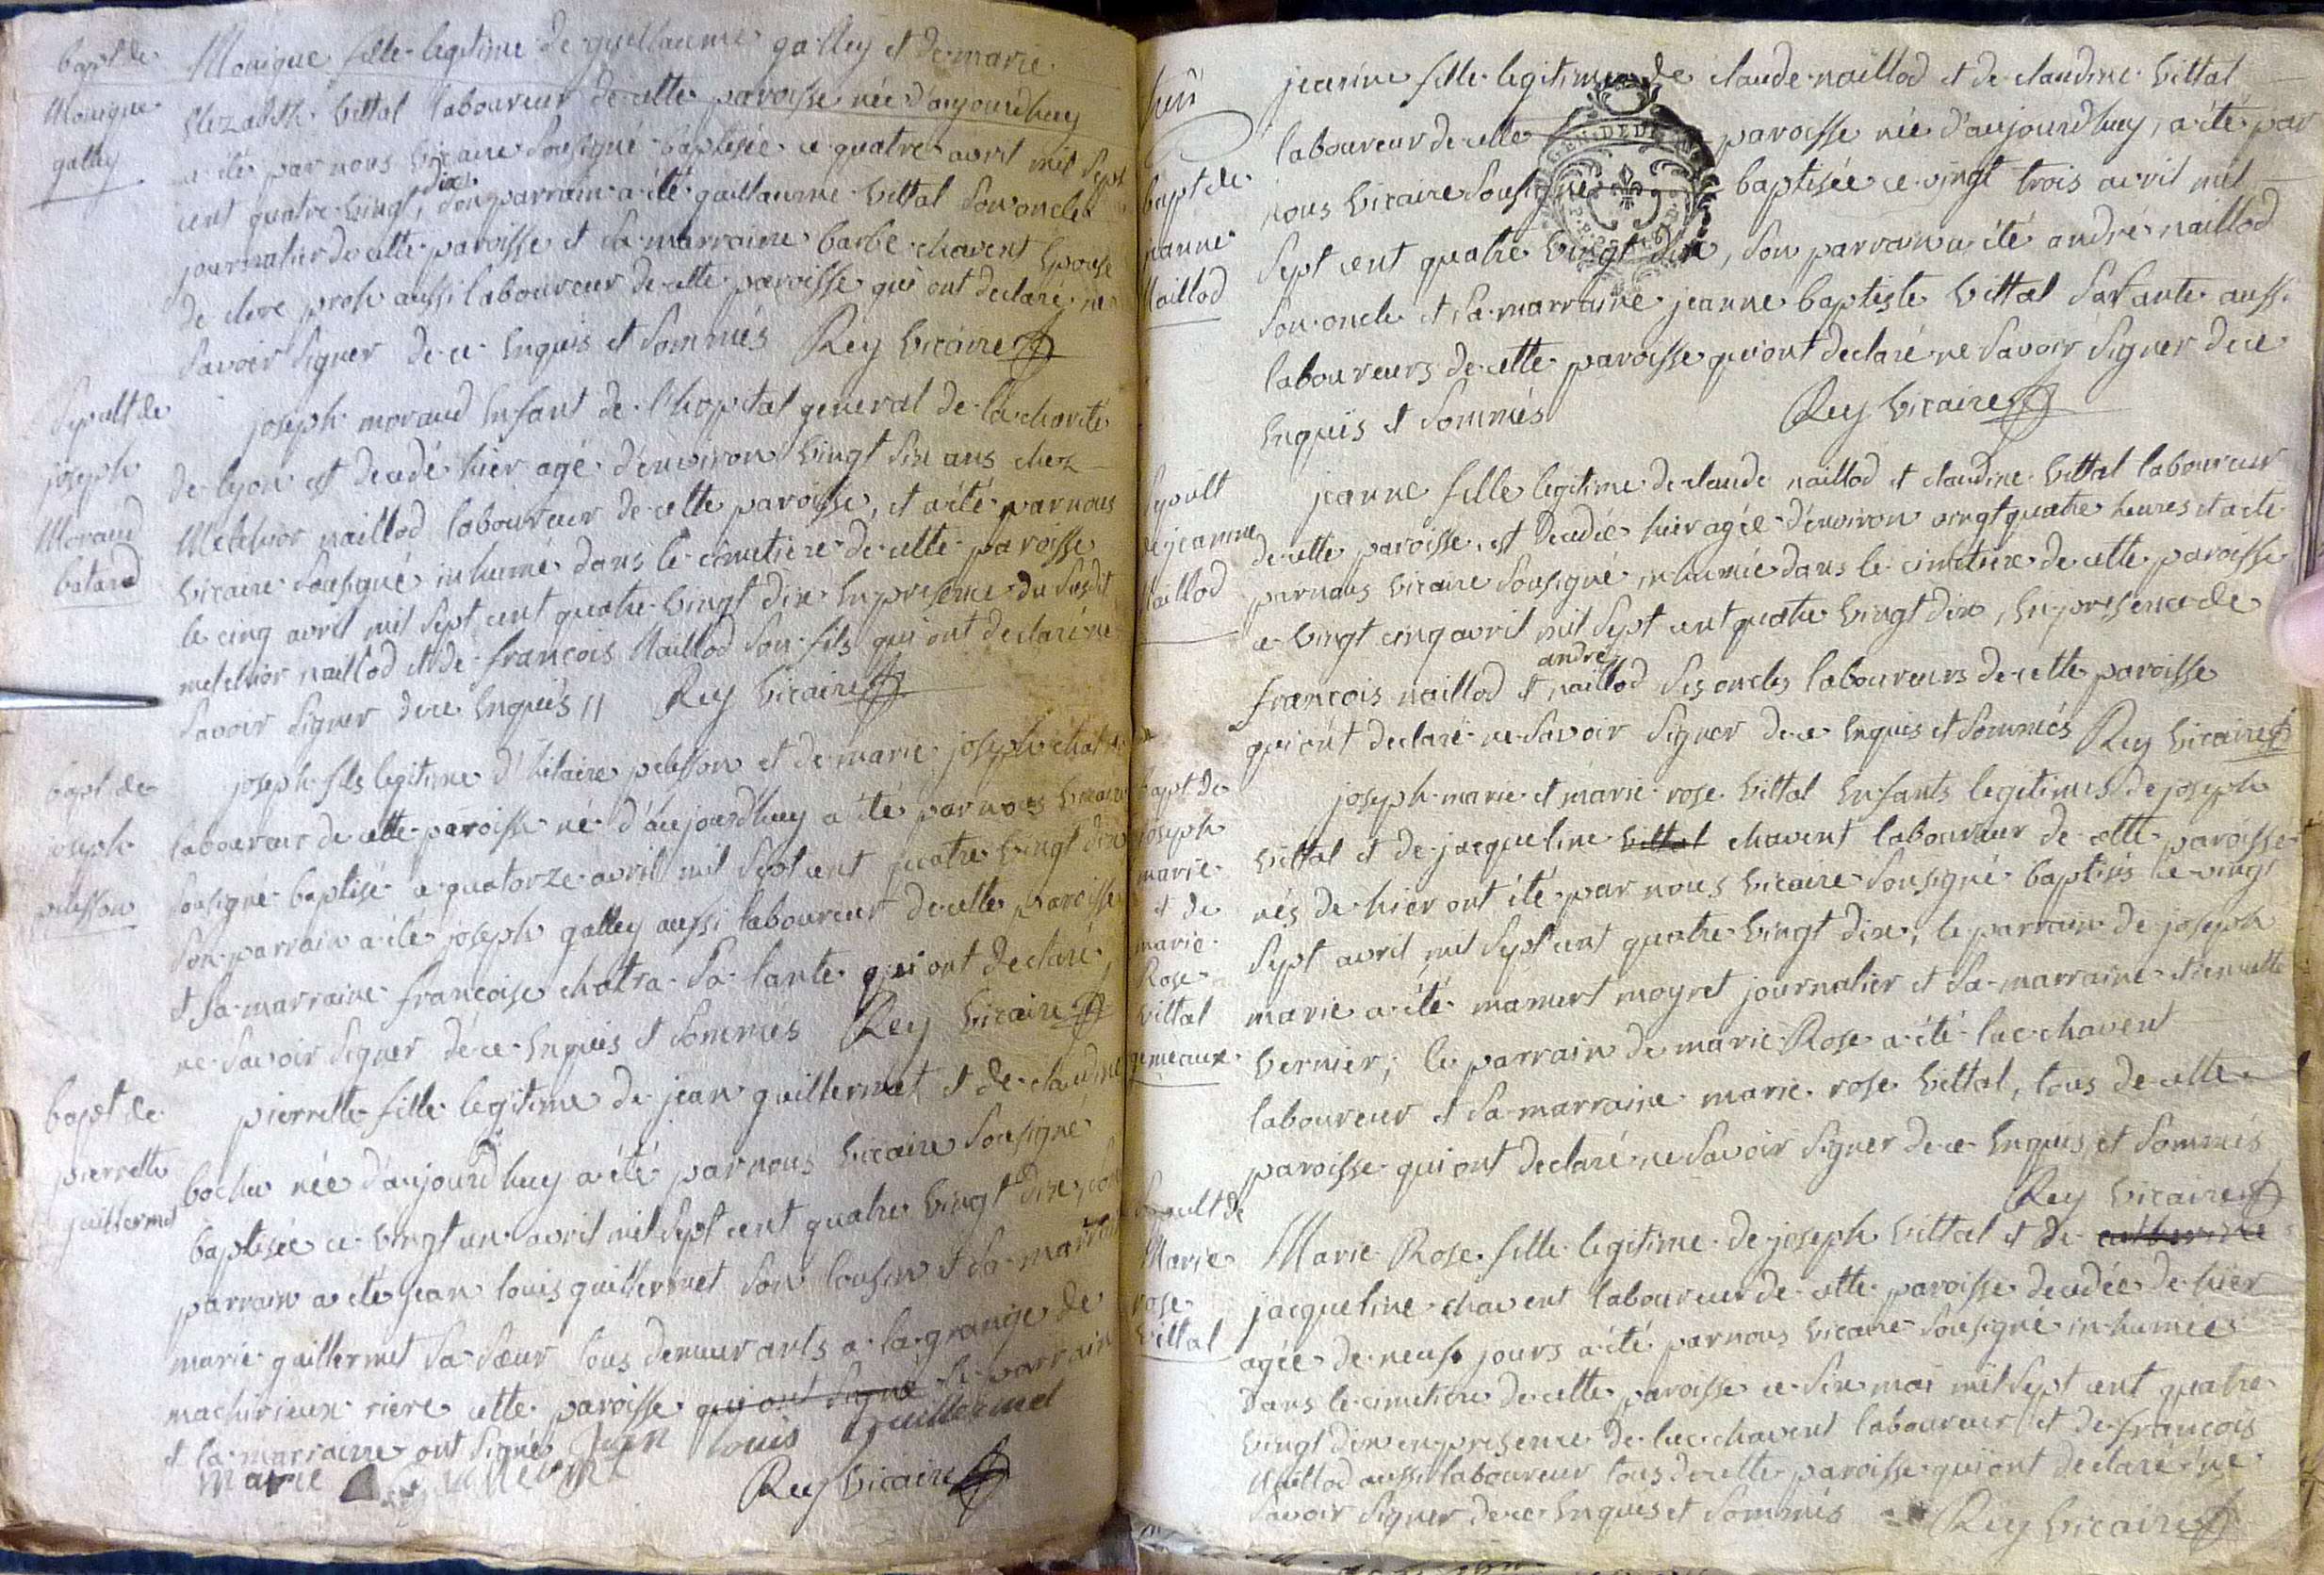 bapt de
Monique
galley
Monique fille legitime de guillaume galley et de marie
Elizabeth Vittal laboureur de cette paroisse née d'aujourdhuy
a été par nous vicaire sousigné baptisée ce quatre avril mil sept
cent quatre vingt dix, son parrain a été guillaume Vittal son oncle
journalier de cette paroisse et sa marraine barbe chavent Epouse
de claire prost aussi laboureur de cette paroisse qui ont declaré ne
savoir signer de ce Enquis et sommés Rey vicaire
Sepult de
joseph
Moraud
batard
joseph moraud Enfant de l'hopital general de la charité
de lyon est decedé hier agé d'environ vingt six ans chez
Melchior naillod laboureur de cette paroisse, et a été par nous
vicaire sousigné inhumé dans le cimetiere de cette paroisse
le cinq avril mil sept cent quatre vingt dix En presence du susdit
melchior naillod et de françois Naillod son fils qui ont declaré ne
savoir signer de ce Enquis // Rey vicaire
bapt de
joseph
pelisson
joseph fils legitime d'hilaire pelisson et de marie joseph
laboureur de cette paroisse né d'aujourdhuy a été par nous vicaire
sousigné baptisé ce quatorze avril mil sept cent quatre vingt dix
son parrain a été joseph galley aussi laboureur de cette paroisse
et sa marraine françoise chatra sa tante qui ont declaré
ne savoir signer de ce Enquis et sommés Rey vicaire
bapt de
pierrette
guillermet
pierrette fille legitime de jean guillermet et de claudine
bochu née d'aujourdhuy a été par nous vicaire sousigné
baptisée ce vingt un avril mil sept cent quatre vingt dix, son
parrain a été jean louis guillermet son cousin et sa marraine
marie guillermet sa sœur tous demeurants a la grange de
machirieux riere cette paroisse qui ont signé le parrain
et la marraine ont signé Jean louis guillermet
marie
Rey vicaire
bapt de
jeanne
Naillod
jeanne fille legitime de claude naillod et de claudine Vittal
laboureur de cette paroisse née d'aujourdhuy, a été par
nous vicaire sousigné baptisée ce vingt trois avril mil
sept cent quatre vingt dix, son parrain a été andré naillod
son oncle et sa marraine jeanne baptiste Vittal sa tante aussi
laboureurs de cette paroisse qui ont declaré ne savoir signer de ce
Enquis et sommés Rey vicaire
Sepult
de jeanne
Naillod
jeanne fille legitime de claude naillod et claudine Vittal laboureur
de cette paroisse est decedée hier agée d'environ vingt quatre heures et a été
par nous vicaire sousigné inhumée dans le cimetiere de cette paroisse
ce vingt cinq avril mil sept cent quatre vingt dix, En presence de
françois naillod et andré naillod ses oncles laboureurs de cette paroisse
qui ont declaré ne savoir signer de ce Enquis et sommés Rey vicaire
bapt de
joseph
marie
et de
marie
Rose
Vittal
gemeaux
joseph marie et marie rose Vittal Enfants legitimes de joseph
Vittal et de jacqueline Vittal chavent laboureur de cette paroisse
nés de hier ont été par nous vicaire sousigné baptisés le vingt
sept avril mil sept cent quatre vingt dix, le parrain de joseph
marie a été mamert moyret journalier et sa marraine
Vernier; le parrain de marie Rose a été luc chavent
laboureur et sa marraine marie rose Vittal, tous de cette
paroisse qui ont declaré ne savoir signer de ce Enquis et sommés
Rey vicaire
Sepult de
Marie
rose
Vittal
Marie Rose fille legitime de joseph Vittal et de catherine
jacqueline chavent laboureur de cette paroisse decedée de hier
agée de neuf jours a été par nous vicaire sousigné inhumée
dans le cimetiere de cette paroisse ce six mai mil sept cent quatre
vingt dix en presence de luc chavent laboureur et de françois
Naillod aussi laboureur tous de cette paroisse qui ont declaré ne
savoir signer de ce Enquis et sommés Rey vicaire